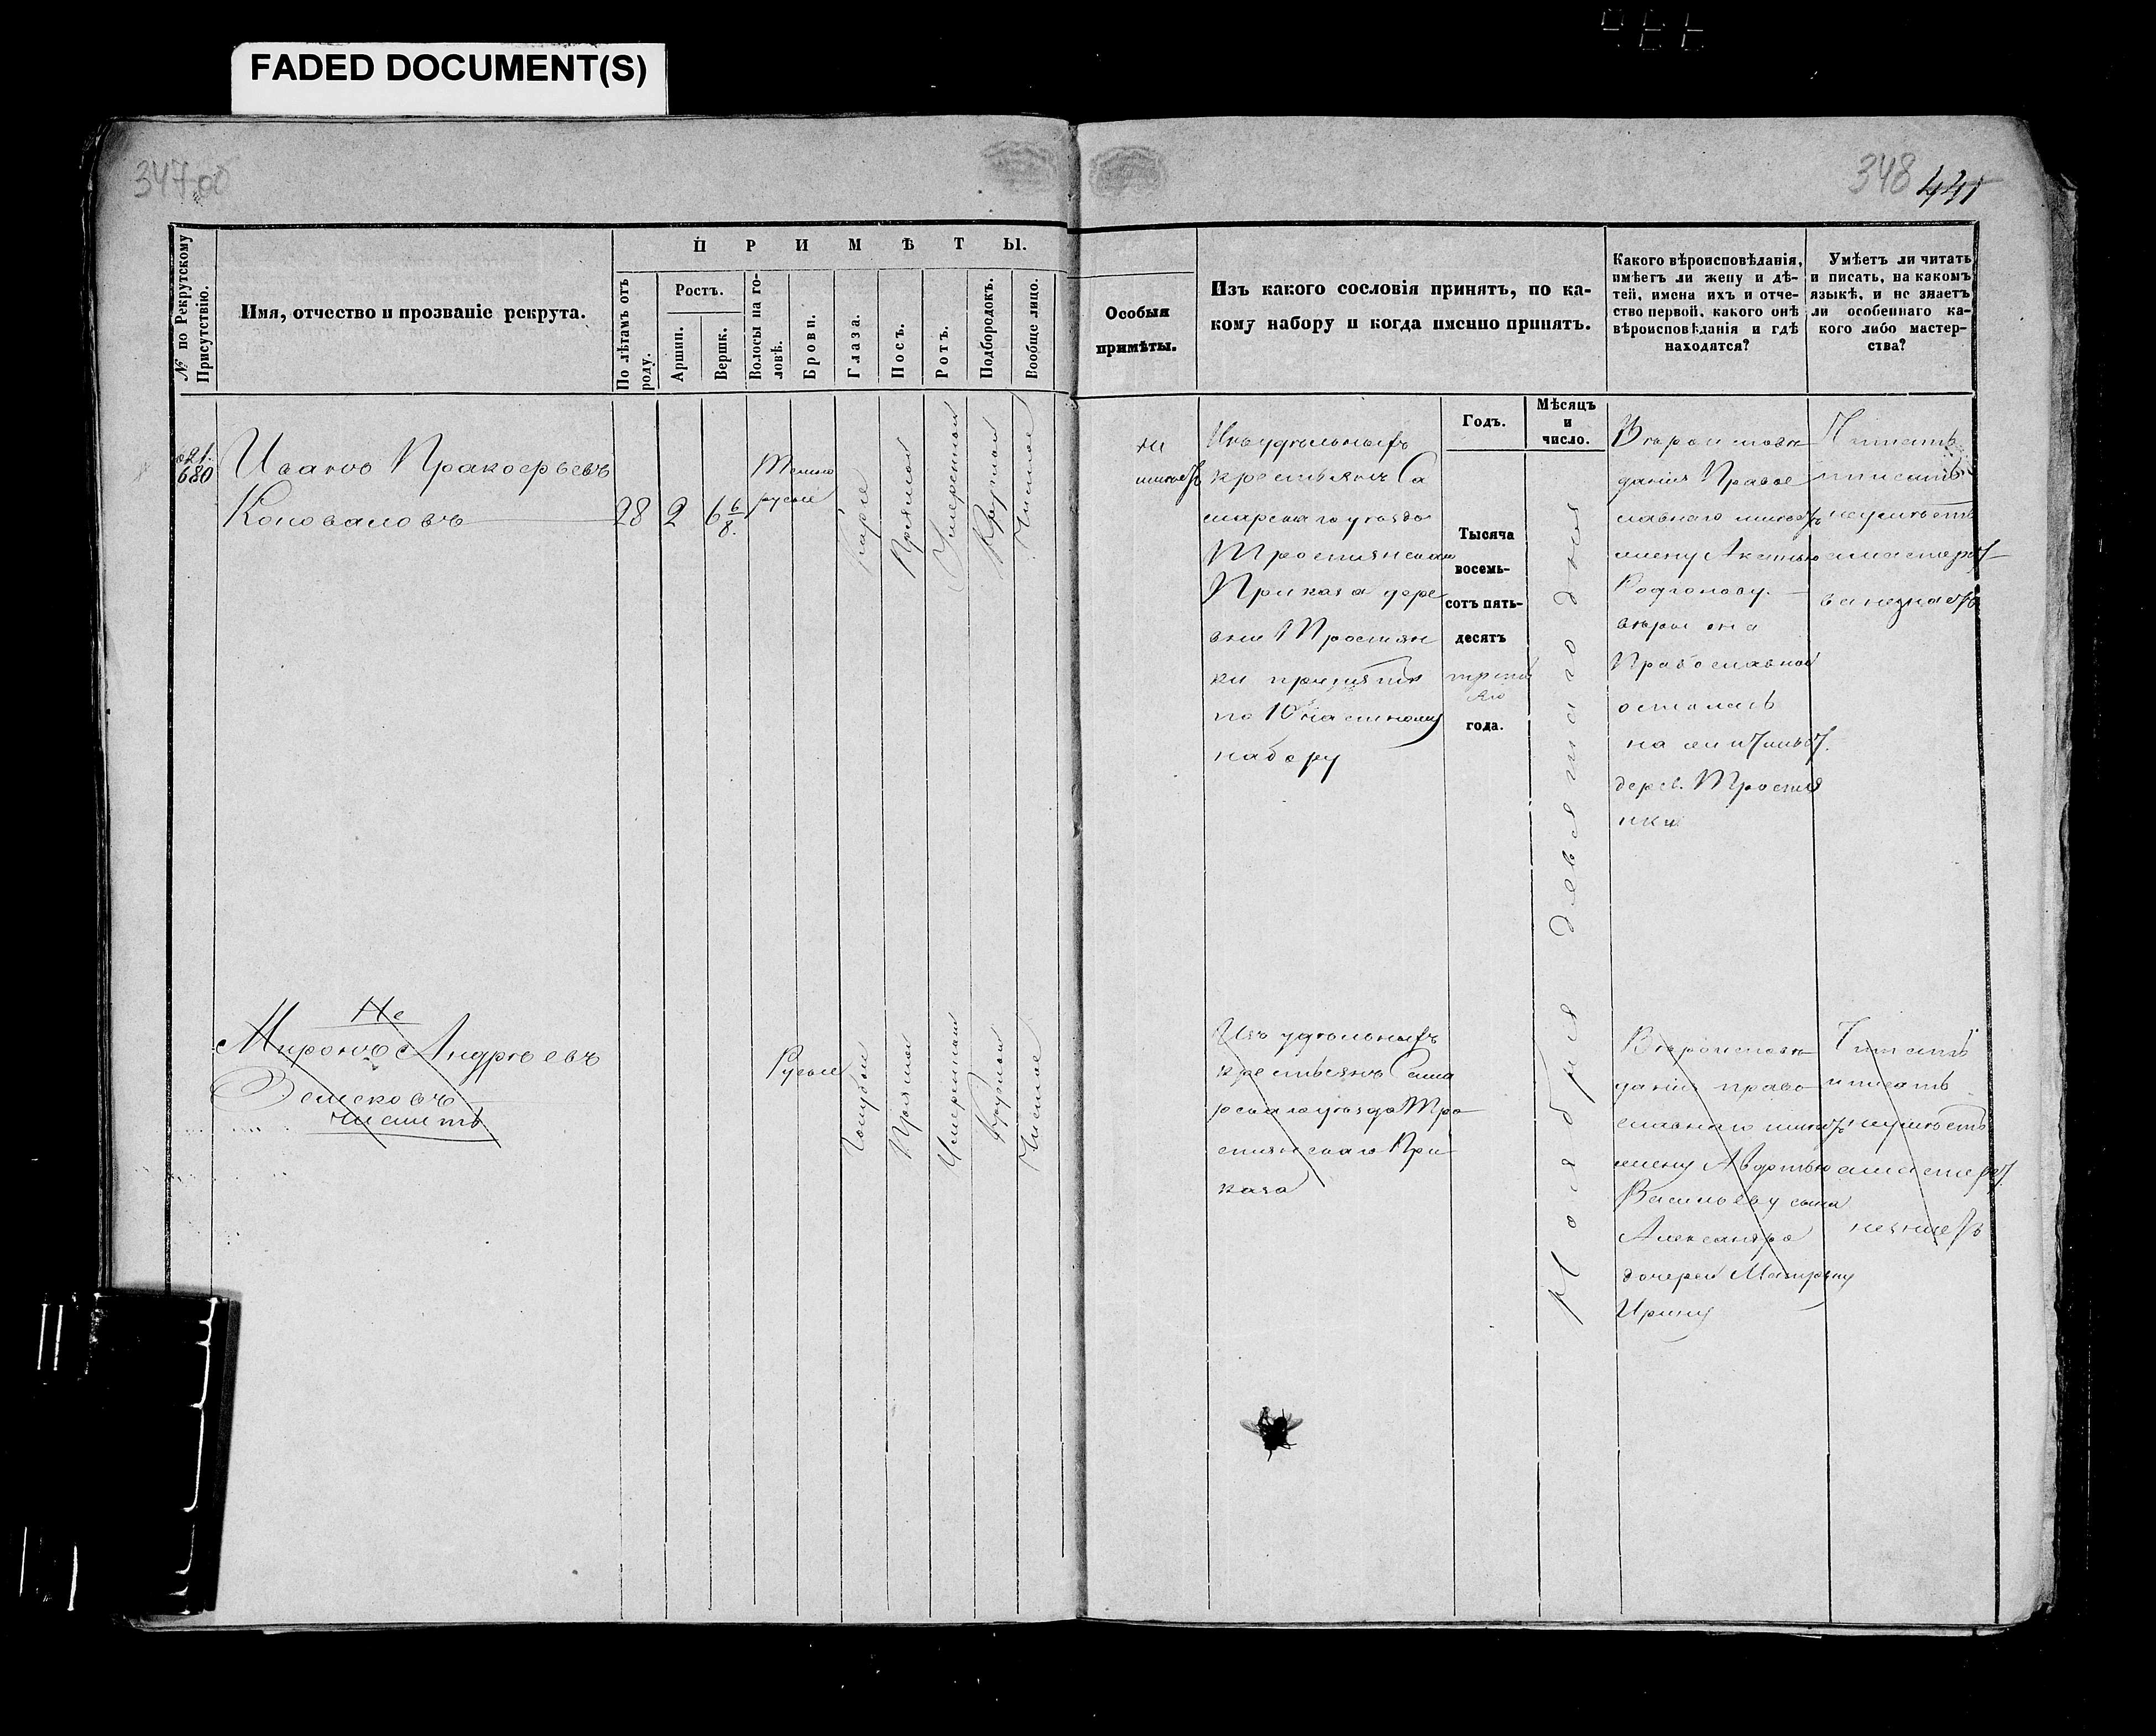 FADED DOCUMENT(S)
347
348
№ по Рекрутскому Присутствію.
Имя, отчество и прозваніе рекрута.
ПРИМѢТЫ.
По лѣтамъ отъ роду.
Ростъ.
Аршин.
Вершк.
Волосы на головѣ.
Брови.
Глаза.
Носъ.
Ротъ.
Подбородокъ.
Вообще лицо.
Особыя
примѣты.
Изъ какого сословія принятъ, по ка-
кому набору и когда именно принятъ.
Какого вѣроисповѣданія,
имѣетъ ли жену и дѣ-
тей, имена ихъ и отче-
ство первой, какого онѣ
вѣроисповѣданія и гдѣ
находятся?
Умѣетъ ли читать
и писать, на какомъ
языкѣ, и не знаетъ
ли особеннаго ка-
кого либо мастер-
ства?
Годъ.
Мѣсяцъ
и
число.
680
Иванъ Пракофьевъ
Коноваловъ
28 2 6 6/8.
Темно
русые
Каріе
Прямой
Умеренный
Круглый
Чистое
не
имѣетъ
Изъ удѣльныхъ
крестьянъ Са
марскаго уѣзда
Тростянскаго
Приказа дере
вни Тростян
ки принятъ
по 10 частному
набору
Тысяча
восемь-
сотъ пять-
десятъ
третьяго
года.
Ноября девятаго дня
Вѣроисповѣ
данія Право
славнаго имѣетъ
жену Акетью
Родіонову.
вѣры она
Православной
осталась
на жительст.
дерев. Тростя
нки
Читать
и писать
неумѣетъ
а мастерст
ва незнаетъ
Не
Миронъ Андрѣевъ
Земсковъ
числитъ
Русые
Голубые
Прямой
Умеренный
Круглый
Чистое
Изъ удѣльныхъ
крестьянъ Сама
рскаго уѣзда Тро
стянскаго При
каза
Вѣроисповѣ
данія право
славнаго имѣетъ
жену Авдотью
Васильеву сына
Александра
дочерей Матрену
Ирину
Читать
и писать
неумѣетъ
а мастерст.
незнаетъ